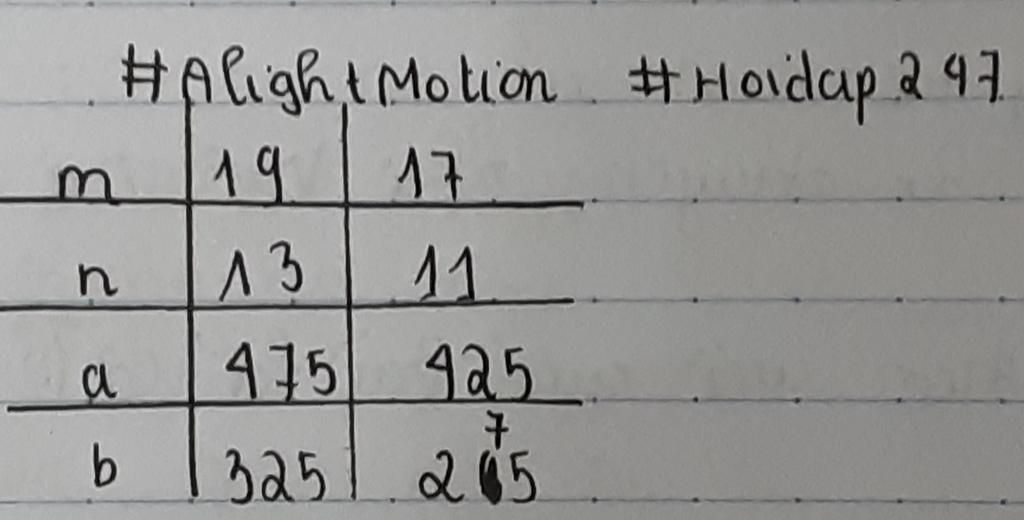 #AlightMotion #Hoidap247
m 19 17
n 13 11
a 475 425
b 325 275